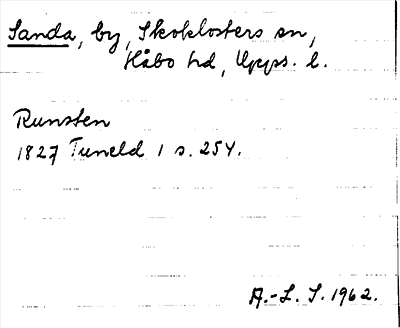 Sanda, by, Skoklosters sn,
Håbo hd, Upps. l.
Runsten
1827 Tuneld 1 s. 254.
A.-L. S. 1962.